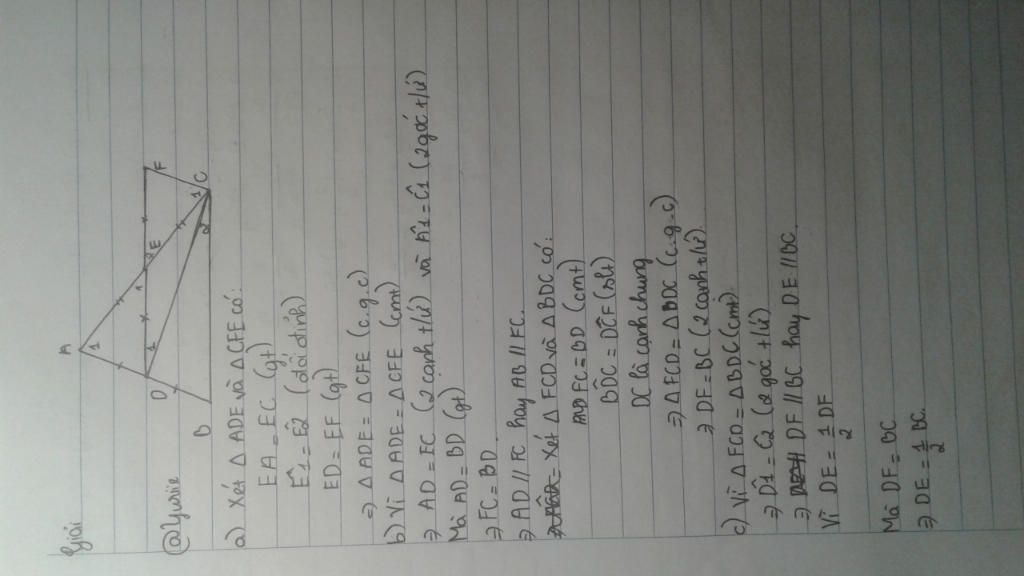 Giải
A
D
1
1
1
2
E
F
B
2
1
C
@Yuriie
a) Xét △ ADE và △ CFE có:
EA = EC (gt)
Ê1 = Ê2 (đối đỉnh)
ED = EF (gt)
⇒ △ ADE = △ CFE (c.g.c)
b) Vì △ ADE = △ CFE (cmt)
⇒ AD = FC (2 cạnh t/ứ) và Â1 = Ĉ1 (2 góc t/ứ)
Mà AD = BD (gt)
⇒ FC = BD.
⇒ AD // FC hay AB // FC.
Xét △ FCD và △ BDC có:
FC = BD (cmt)
BD̂C = DĈF (slt)
DC là cạnh chung
⇒ △ FCD = △ BDC (c.g.c)
⇒ DF = BC (2 cạnh t/ứ)
c) Vì △ FCD = △ BDC (cmt)
⇒ D̂1 = Ĉ2 (2 góc t/ứ)
⇒ DF // BC hay DE // BC.
Vì DE = 1/2 DF
Mà DF = BC
⇒ DE = 1/2 BC.